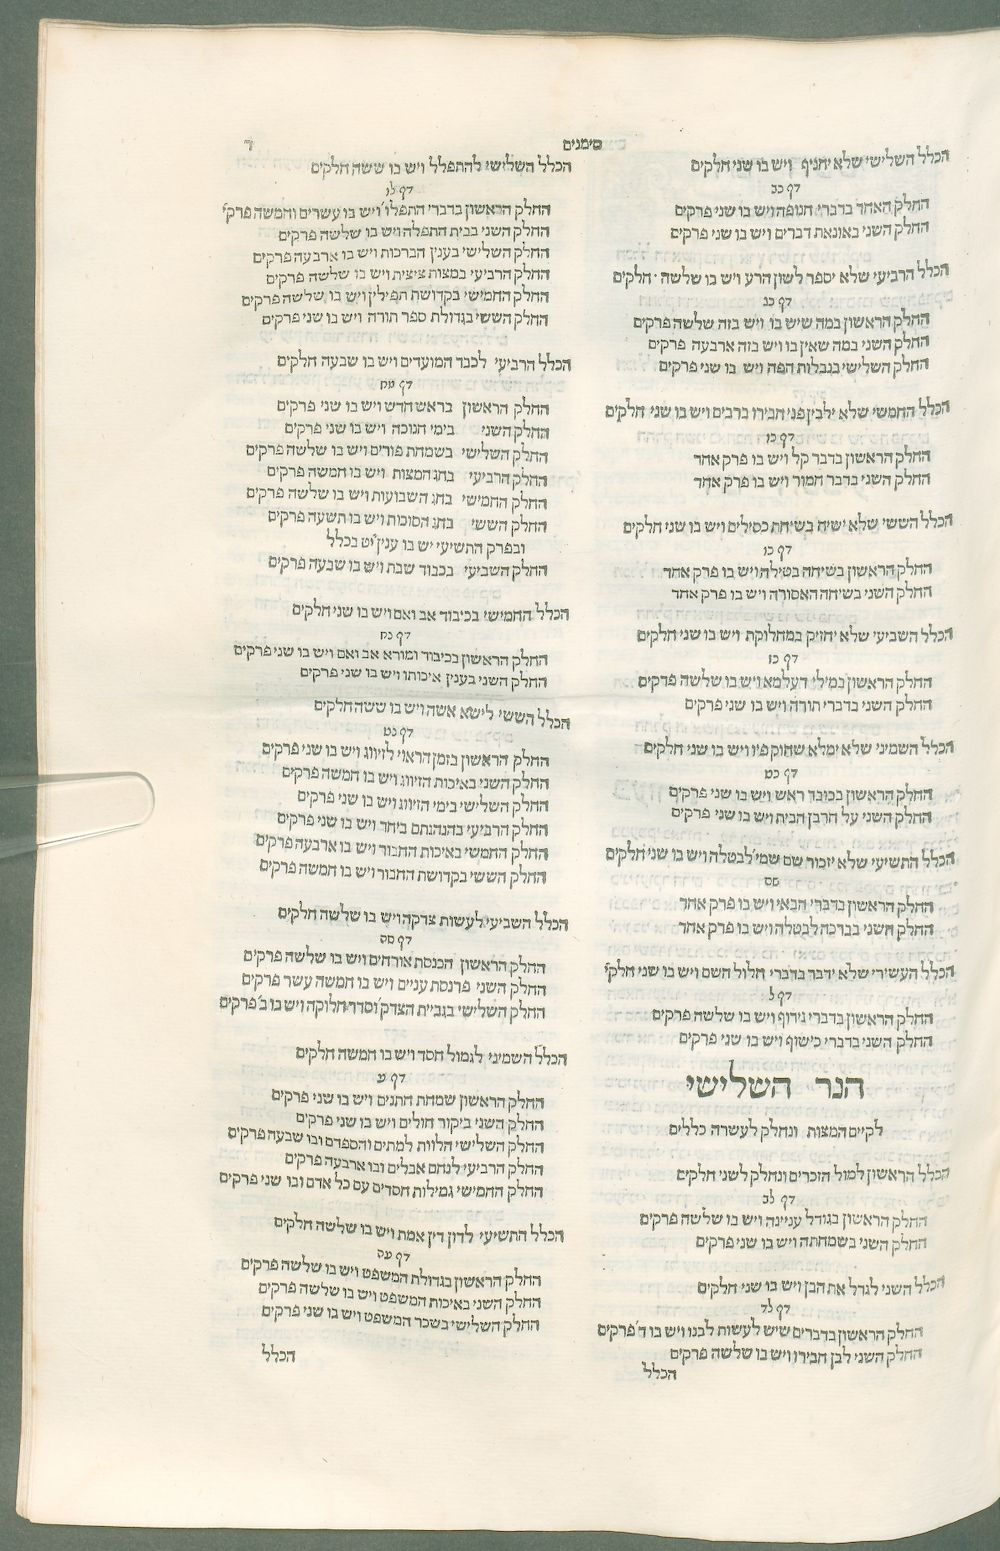 סימנים
ד
הכלל השלישי שלא יחניף ויש בו שני חלקים
דף כב
החלק האחד בדברי חנופה ויש בו שני פרקים
החלק השני באונאת דברים ויש בו שני פרקים
הכלל הרביעי שלא יספר לשון הרע ויש בו שלשה חלקים
דף כג
החלק הראשון במה שיש בו ויש בזה שלשה פרקים
החלק השני במה שאין בו ויש בזה ארבעה פרקים
החלק השלישי בנבלות הפה ויש בו שני פרקים
הכלל החמשי שלא ילבין פני חבירו ברבים ויש בו שני חלקים
דף כו
החלק הראשון בדבר קל ויש בו פרק אחד
החלק השני בדבר חמור ויש בו פרק אחד
הכלל הששי שלא ישיח בשיחת כסילים ויש בו שני חלקים
דף כו
החלק הראשון בשיחה בטילה ויש בו פרק אחד
החלק השני בשיחה האסורה ויש בו פרק אחד
הכלל השביעי שלא יחזיק במחלוקת ויש בו שני חלקים
דף כז
החלק הראשון במילי דעלמא ויש בו שלשה פרקים
החלק השני בדברי תורה ויש בו שני פרקים
הכלל השמיני שלא ימלא שחוק פיו ויש בו שני חלקים
דף כט
החלק הראשון בכובד ראש ויש בו שני פרקים
החלק השני על חרבן הבית ויש בו שני פרקים
הכלל התשיעי שלא יזכור שם שמי' לבטלה ויש בו שני חלקים
החלק הראשון בדברי הבאי ויש בו פרק אחד
החלק השני בברכה לבטלה ויש בו פרק אחד
הכלל העשירי שלא ידבר בדברי חלול השם ויש בו שני חלקי'
דף ל
החלק הראשון בדברי גידוף ויש בו שלשה פרקים
החלק השני בדברי כישוף ויש בו שני פרקים
הנר השלישי
לקיים המצות ונחלק לעשרה כללים
הכלל הראשון למול הזכרים ונחלק לשני חלקים
דף לב
החלק הראשון בגודל עניינה ויש בו שלשה פרקים
החלק השני בשמחתה ויש בו שני פרקים
הכלל השני לגדל את הבן ויש בו שני חלקים
דף לד
החלק הראשון בדברים שיש לעשות לבנו ויש בו ד' פרקים
החלק השני לבן חבירו ויש בו שלשה פרקים
הכלל
הכלל השלישי להתפלל ויש בו ששה חלקים
דף לו
החלק הראשון בדברי התפלו' ויש בו עשרים וחמשה פרקי'
החלק השני בבית התפלה ויש בו שלשה פרקים
החלק השלישי בענין הברכות ויש בו ארבעה פרקים
החלק הרביעי במצות ציצית ויש בו שלשה פרקים
החלק החמישי בקדושת תפילין ויש בו שלשה פרקים
החלק הששי בגדולת ספר תורה ויש בו שני פרקים
הכלל הרביעי לכבד המועדים ויש בו שבעה חלקים
דף מח
החלק הראשון בראש חדש ויש בו שני פרקים
החלק השני בימי חנוכה ויש בו שני פרקים
החלק השלישי בשמחת פורים ויש בו שלשה פרקים
החלק הרביעי בחג המצות ויש בו חמשה פרקים
החלק החמישי בחג השבועות ויש בו שלשה פרקים
החלק הששי בחג הסוכות ויש בו תשעה פרקים
ובפרק התשיעי יש בו ענין י"ט בכלל
החלק השביעי בכבוד שבת ויש בו שבעה פרקים
הכלל החמישי בכיבוד אב ואם ויש בו שני חלקים
דף כח
החלק הראשון בכיבוד ומורא אב ואם ויש בו שני פרקים
החלק השני בענין איכותו ויש בו שני פרקים
הכלל הששי לישא אשה ויש בו ששה חלקים
דף כט
החלק הראשון בזמן הראוי לזיווג ויש בו שני פרקים
החלק השני באיכות הזיווג ויש בו חמשה פרקים
החלק השלישי בימי הזיווג ויש בו שני פרקים
החלק הרביעי בהנהגתם ביחד ויש בו שני פרקים
החלק החמשי באיכות החבור ויש בו ארבעה פרקים
החלק הששי בקדושת החבור ויש בו חמשה פרקים
הכלל השביעי לעשות צדקה ויש בו שלשה חלקים
דף סס
החלק הראשון הכנסת אורחים ויש בו שלשה פרקים
החלק השני פרנסת עניים ויש בו חמשה עשר פרקים
החלק השלישי בגביית הצדק' וסדר חלוקה ויש בו ב' פרקים
הכלל השמיני לגמול חסד ויש בו חמשה חלקים
דף ע
החלק הראשון שמחת חתנים ויש בו שני פרקים
החלק השני ביקור חולים ויש בו שני פרקים
החלק השלישי הלוות למתים והספדם ובו שבעה פרקים
החלק הרביעי לנחם אבלים ובו ארבעה פרקים
החלק החמישי גמילות חסדים עם כל אדם ובו שני פרקים
הכלל התשיעי לדון דין אמת ויש בו שלשה חלקים
דף עס
החלק הראשון בגדולת המשפט ויש בו שלשה פרקים
החלק השני באיכות המשפט ויש בו שלשה פרקים
החלק השלישי בשכר המשפט ויש בו שני פרקים
הכלל